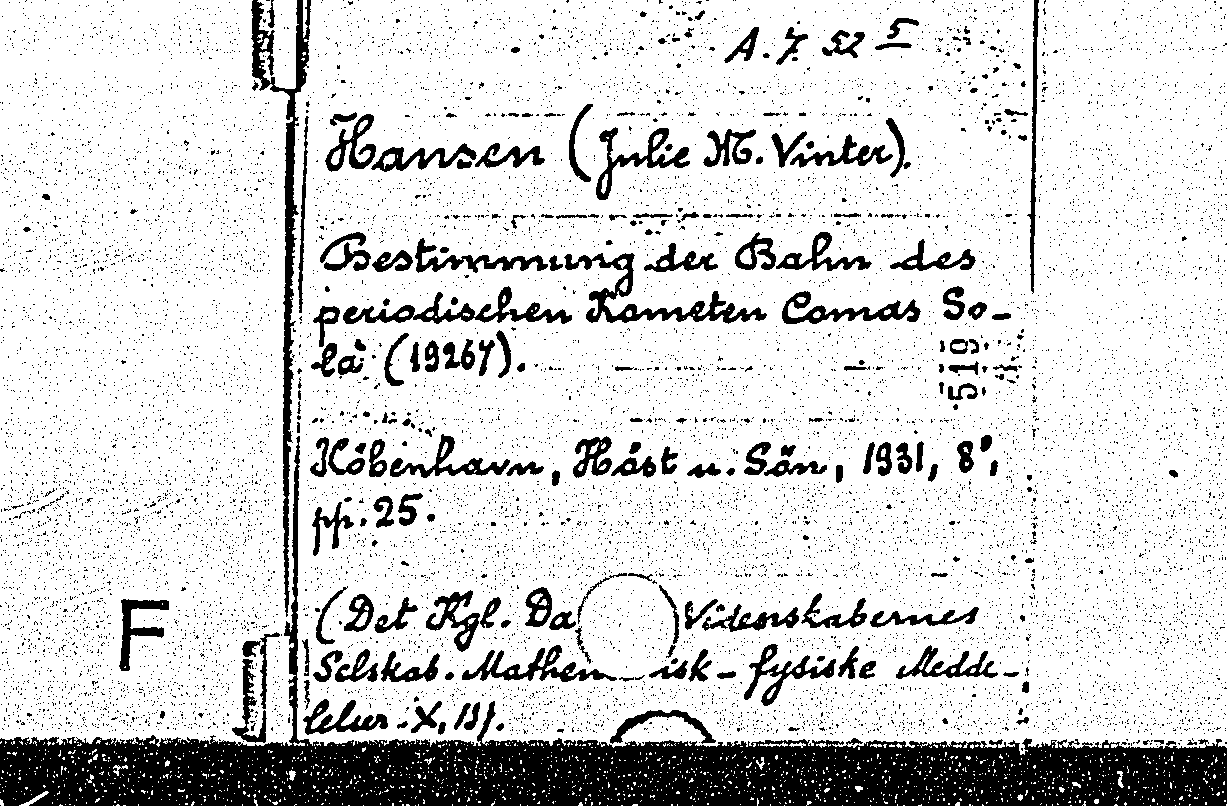 A. 7. 52 5
Hansen (Julie M. Vinter).
Bestimmung der Bahn des
periodischen Kometen Comas So-
là (1926f).
519
Köbenhavn, Höst u. Sön, 1931, 8°,
pp. 25.
F
(Det Kgl. Da Videnskabernes
Selskab. Mathem isk-fysiske Medde-
lelser. X, 13).